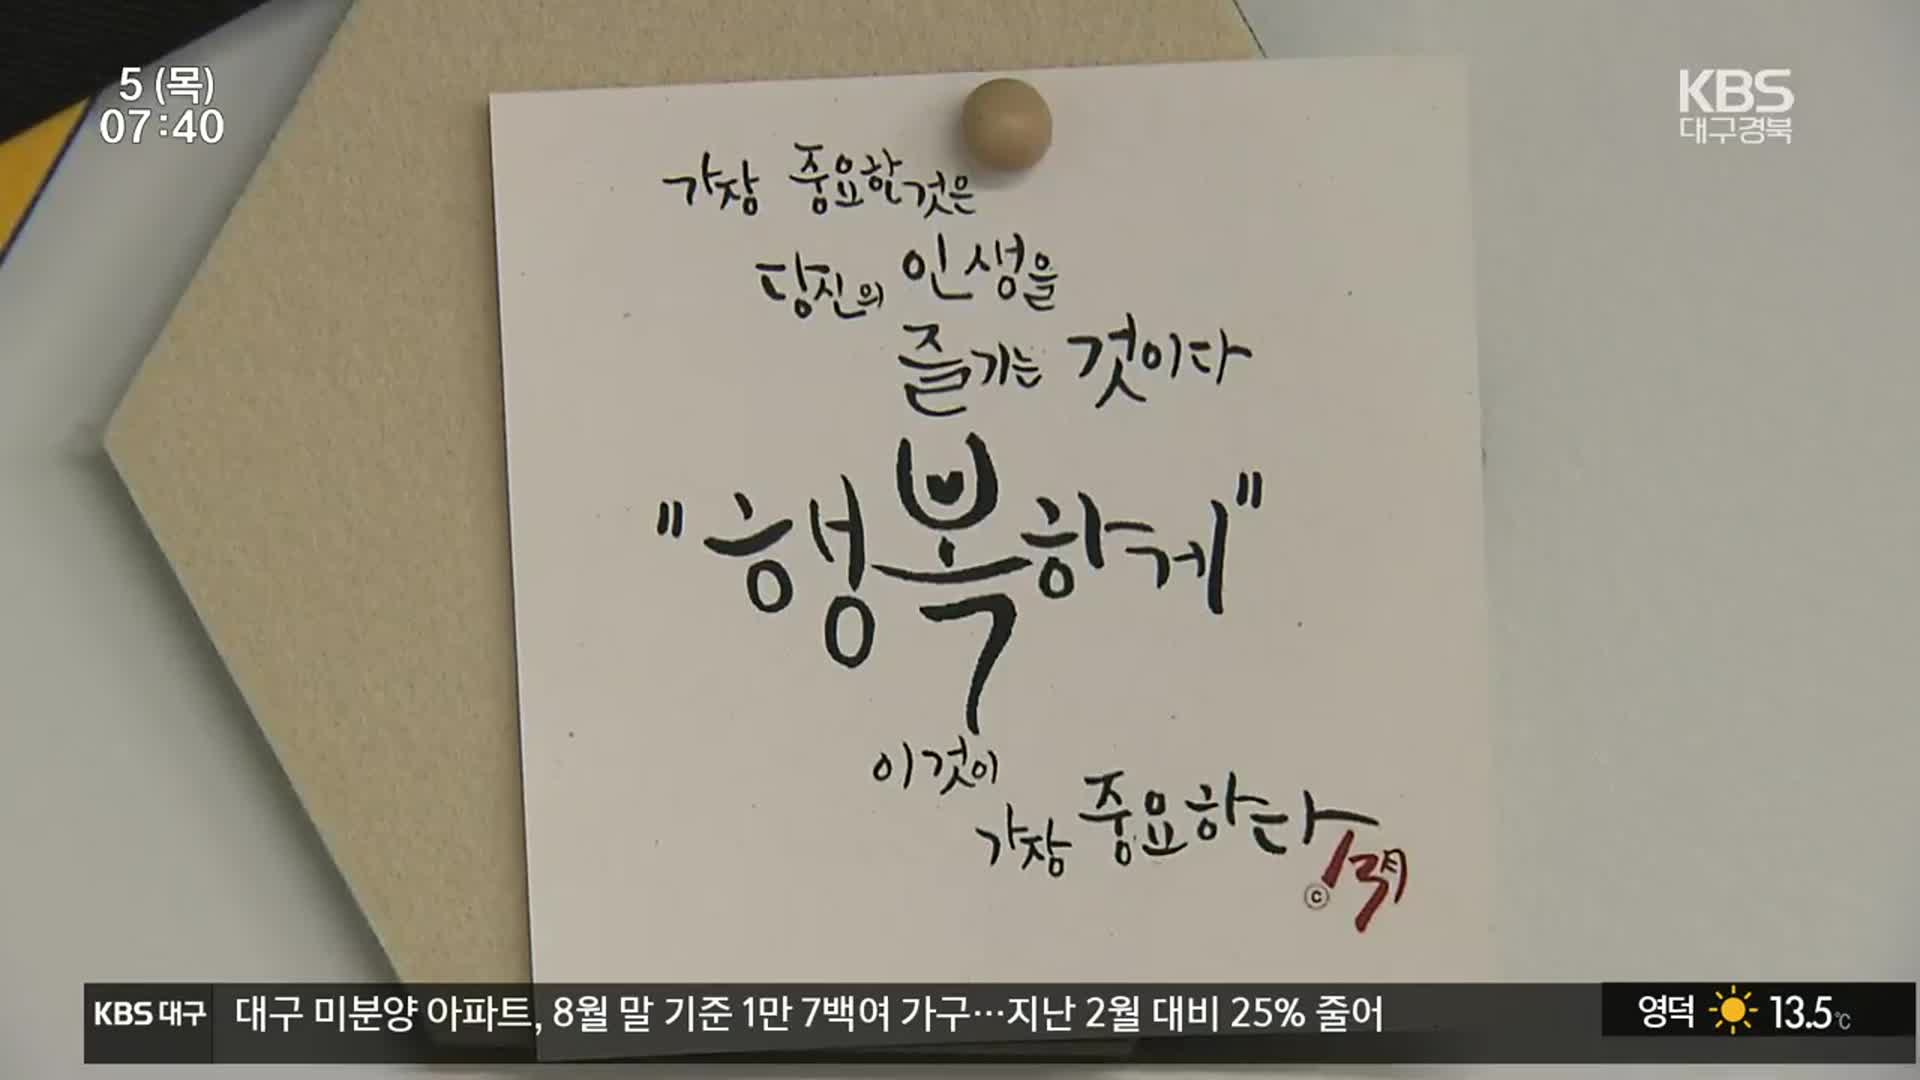 5 (목)
07:40
KBS
대구경북
가장 중요한것은
당신의 인생을
즐기는 것이다
"행복하게"
이것이
가장 중요하다
ⓒ
KBS 대구 대구 미분양 아파트, 8월 말 기준 1만 7백여 가구…지난 2월 대비 25% 줄어
영덕 13.5℃